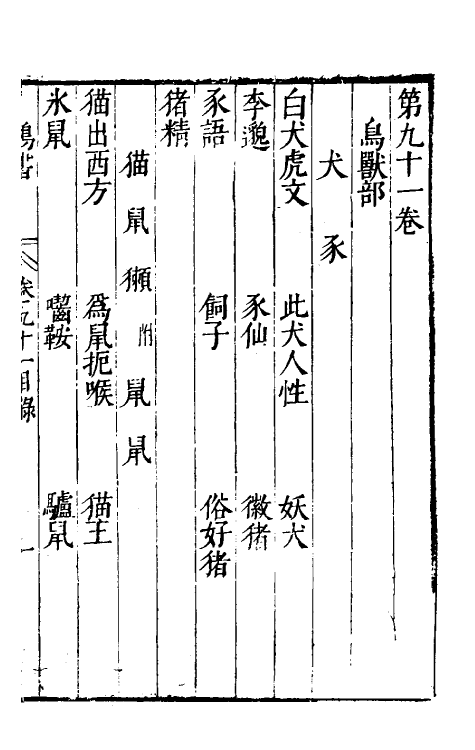 第九十一卷
鳥獸部
犬 豕
白犬虎文 此犬人性 妖犬
李邈 豕仙 徽猪
豕語 飼子 俗好猪
猪精
猫 鼠 獺附 鼠鼠
猫出西方 為鼠扼喉 猫王
氷鼠 囓鞍 驢鼠
卷之九十一目錄 一